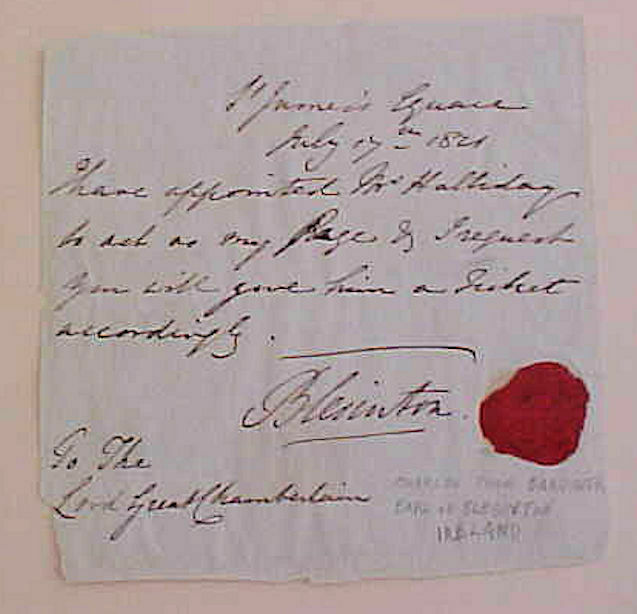 St James's Square
July 17th 1821
I have appointed Mr Halliday
to act as my Page & I request
you will give him a Ticket
accordingly.
Blesinton.
To The
Lord Great Chamberlain
CHARLES JOHN GARDINER
EARL OF BLESINTON
IRELAND